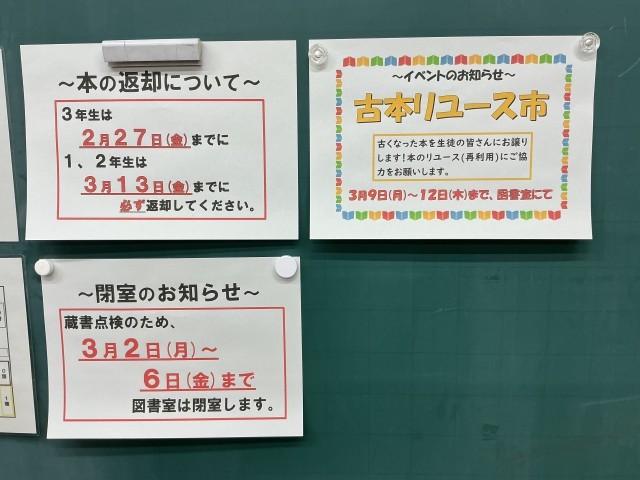 ～本の返却について～
3年生は
2月27日(金)までに
1、2年生は
3月13日(金)までに
必ず返却してください。
～イベントのお知らせ～
古本リユース市
古くなった本を生徒の皆さんにお譲り
します!本のリユース(再利用)にご協
力をお願いします。
3月9日(月)～12日(木)まで、図書室にて
～閉室のお知らせ～
蔵書点検のため、
3月2日(月)～
6日(金)まで
図書室は閉室します。